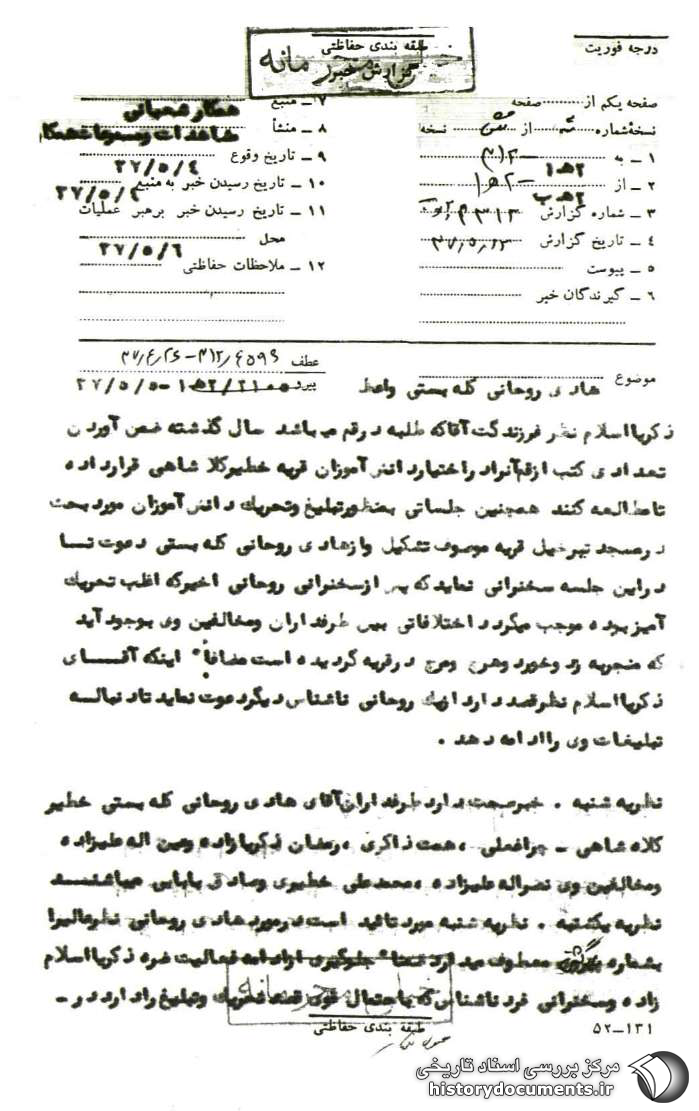 درجه فوریت
طبقه بندی حفاظتی
گزارش خبر
صفحه یکم از صفحه
نسخهٔ شماره از نسخه
۱ ـ به ۳۱۲
۲ ـ از
۳ ـ شماره گزارش
۴ ـ تاریخ گزارش
۵ ـ پیوست
۶ ـ گیرندگان خبر
۷ ـ منبع همکار شعبانی
۸ ـ منشأ
۹ ـ تاریخ وقوع ۳۷/۵/۴
۱۰ ـ تاریخ رسیدن خبر به منبع
۱۱ ـ تاریخ رسیدن خبر برهبر عملیات
محل ۳۷/۵/۶
۱۲ ـ ملاحظات حفاظتی
عطف
موضوع هادی روحانی گله بستی واعظ
پیرو
ذکریا اسلام نظر فرزند گت آقا که طلبه در قم می باشد سال گذشته ضمن آوردن
تعدادی کتب از قم آنرا در اختیار دانش آموزان قریه خطیرکلا شاهی قرار داده
تا مطالعه کنند همچنین جلساتی بمنظور تبلیغ و تحریک دانش آموزان مورد بحث
در مسجد قریه موصوف تشکیل و از هادی روحانی گله بستی دعوت تسا
در این جلسه سخنرانی نماید که پس از سخنرانی روحانی اخیر که اغلب تحریک
آمیز بوده موجب میگردد اختلافاتی بین طرفداران و مخالفین وی بوجود آید
که منجربه زد و خورد و هرج و مرج در قریه گردیده است مضافاً اینکه آقـــای
ذکریا اسلام نظر قصد دارد از یک روحانی ناشناس دیگر دعوت نماید تا دنبالـه
تبلیغات وی را ادامه دهد .
نظریه شنبه . خبر صحت دارد طرفداران آقای هادی روحانی گله بستی خطیر
کلاه شاهی ـ چراغعلی ، همت ذاکری ، رمضان ذکریازاده و عین اله علیزاده
و مخالفین وی نصراله علیزاده ، محمدعلی خطیری و صادق بابایی میباشنـــد
نظریه یکشنبه . نظریه شنبه مورد تائید است در مورد هادی روحانی نظر عالیرا
بشماره معطوف میدارد ضمناً جلوگیری از ادامه فعالیت ذکریا اسلام
زاده و سخنرانی فرد ناشناس که باحتمال قوی قصد تحریک و تبلیغ را دارد در ـ
طبقه بندی حفاظتی
۵۲ــ۱۳۱
مرکز بررسی اسناد تاریخی
historydocuments.ir